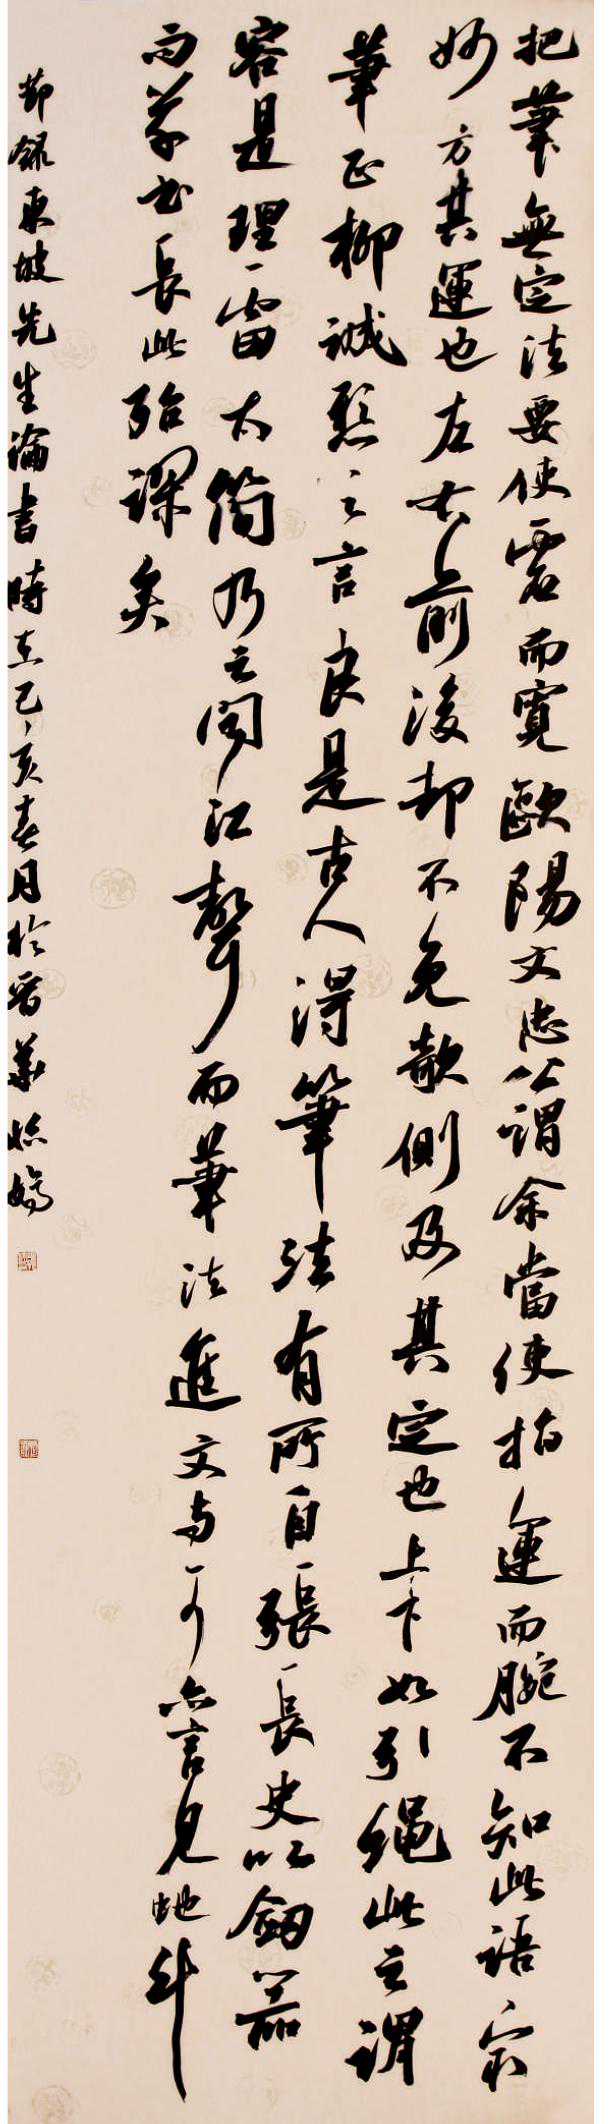 把筆無定法要使虛而寬歐陽文忠公謂余當使指運而腕不知此語最
妙方其運也左右前後却不免欹側及其定也上下如引繩此之謂
筆正柳誠懸之言良是古人得筆法有所自張長史以劍器
容是理雷太簡乃云聞江聲而筆法進文与可亦言見蛇斗
而草書長此殆謬矣
節録東坡先生論書時在己亥春月於晉華